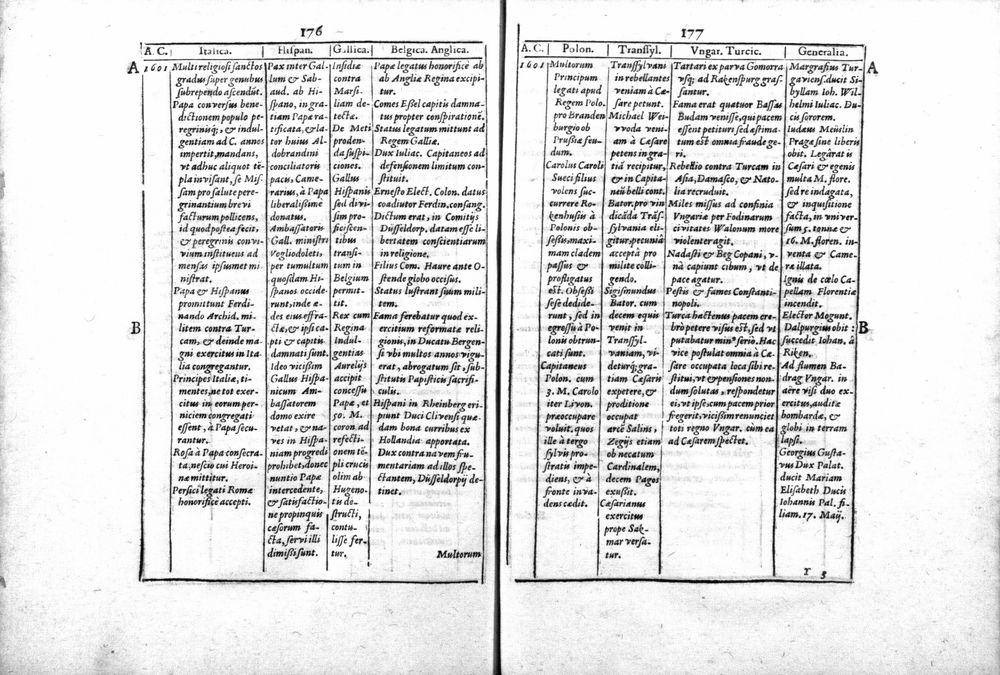 176
A. C.
Italica.
Hispan.
Gallica.
Belgica. Anglica.
A
B
1601
Multi religiosi sanctos
gradus super genubus
subrependo ascendũt.
Papa conversus bene-
dictionem populo pe-
regrinisq́;, & indul-
gentiam ad C. annos
impertit, mandans,
vt adhuc aliquot tē-
pla invisant, se Mis-
sam pro salute pere-
grinantium brevi
facturum pollicens,
id quod postea fecit,
& peregrinis convi-
vium instituens ad
mensas ipsusmet mi-
nistrat.
Papa & Hispanus
promittunt Ferdi-
nando Archid. mi-
litem contra Tur-
cam, & deinde ma-
gni exercitus in Ita-
lia congregantur.
Principes Italiæ, ti-
mentes, ne tot exer-
citus in eorum per-
niciem congregati
essent, à Papa secu-
rantur.
Rosa à Papa consecra-
ta, nescio cui Heroi-
na mittitur.
Persici legati Romæ
honorificè accepti.
Pax inter Gal-
lum & Sab-
aud. ab Hi-
spano, in gra-
tiam Papæ ra-
tificata, & la-
tor huius Al-
dobrandini
conciliatoris
pacis, Came-
rarius, à Papa
liberalissimè
donatus.
Ambassatoris
Gall. ministri
Vogliodoleti,
per tumultum
quosdam Hi-
spanos occide-
runt, inde æ-
des eius effra-
ctæ, & ipsi ca-
pti & capitis
damnati sunt.
Ideo vicissim
Gallus Hispa-
nicum Am-
bassatorem
domo exire
vetat, & na-
ves in Hispa-
niam progredi
prohibet, donec
nuntio Papæ
intercedente,
& satisfactio-
ne propinquis
cæsorum fa-
cta, servi illi
dimissi sunt.
Insidiæ
contra
Marsi-
liam de-
tectæ.
De Meti
proden-
da suspi-
ciones.
Gallus
Hispanis
sed divi-
sim pro-
ficiscen-
tibus
transi-
tum in
Belgium
permit-
tit.
Rex cum
Regina
Indul-
gentias
Aurelijs
accipit
concessu
Papæ, et
50. M.
coron. ad
refecti-
onem tē-
pli crucis
olim ab
Hugeno-
tis de-
structi,
contu-
lisse fer-
tur.
Papæ legatus honorificè ab
ab Angliæ Regina excipi-
tur.
Comes Essel capitis damna-
tus propter conspirationē.
Status legatum mittunt ad
Regem Galliæ.
Dux Iuliac. Capitaneos ad
defensionem limitum con-
stituit.
Ernesto Elect. Colon. datus
coadiutor Ferdin. consang.
Dictum erat, in Comitijs
Düsseldorp. datam esse li-
bertatem conscientiarum
in religione.
Filius Com. Haure ante O-
stende globo occisus.
Status lustrant suum mili-
tem.
Fama ferebatur quod ex-
ercitium reformatæ reli-
gionis, in Ducatu Bergen-
si vbi multos annos vigu-
erat, abrogatum sit, sub-
stitutis Papisticis sacrifi-
culis.
Hispani in Rheinberg eri-
piunt Duci Clivensi quæ-
dam bona curribus ex
Hollandia apportata.
Dux contra navem fru-
mentariam ad illos spe-
ctantem, Düsseldorpij de-
tinet.
Multorum
177
A. C.
Polon.
Transsyl.
Vngar. Turcic.
Generalia.
A
B
1601
Multorum
Principum
legati apud
Regem Polo.
pro Branden
burgico ob
Prussiæ feu-
dum.
Carolus Caroli
Sueci filius
volens suc-
currere Ro-
kenhusiis à
Polonis ob-
sessis, maxi-
mam cladem
passus &
profligatus
est. Obsessi
sese dedide-
runt, sed in
egressu à Po-
lonis obtrun-
cati sunt.
Capitaneus
Polon. cum
3. M. Carolo
iter Livon.
præoccupare
voluit, quos
ille à tergo
sylvis pro-
stratis impe-
diens, & à
fronte inva-
dens cædit.
Transsylvani
in rebellantes
veniam à Cæ-
sare petunt.
Michael Wei-
vvoda veni-
am à Cæsare
petens in gra-
tiã recipitur,
& in Capita-
neũ belli cont.
Bator. pro vin
dicãda Trãs-
sylvania eli-
gitur, pecuniâ
acceptâ pro
milite colli-
gendo.
Sigismundus
Bator. cum
decem equis
venit in
Transsyl-
vaniam, vi-
deturq́; gra-
tiam Cæsaris
expetere, &
proditione
occupat
arcē Salins,
Zegijs etiam
ob necatum
Cardinalem,
decem Pagos
exussit.
Cæsarianus
exercitus
prope Sak-
mar versa-
tur.
Tartari ex parva Gomorra
vsq́; ad Rakenspurg gras-
santur.
Fama erat quatuor Bassas
Budam venisse, qui pacem
essent petituri sed æstima-
tum est omnia fraude ge-
ri.
Rebellio contra Turcam in
Asia, Damasco, & Nato-
lia recruduit.
Miles missus ad confinia
Vngariæ per Fodinarum
civitates Walonum more
violenter agit.
Nadasti & Beg Copani, v-
nà capiunt cibum, vt de
pace agatur.
Pestis & fames Constanti-
nopoli.
Turca hactenus pacem cre-
brò petere visus est, sed vt
putabatur minꝰ seriò. Hac
vice postulat omnia à Cæ-
sare occupata loca sibi re-
stitui, vt & pensiones non-
dum solutas, respondetur
ei, vt ipse, cum pacem prior
fregerit, vicissim renunciet
toti regno Vngar. cùm ea
ad Cæsarem spectet.
Margrafius Tur-
gaviens. ducit Si-
byllam Ioh. Wil-
helmi Iuliac. Du-
cis sororem.
Iudæus Meüslin
Pragæ sine liberis
obit. Legârat is
Cæsari & egenis
multa M. flore.
sed re indagata,
& inquisitione
facta, in vniver-
sum 5. tonnæ &
16. M. floren. in-
venta & Came-
ræ illata.
Ignis de cœlo Ca-
pellam Florentiæ
incendit.
Elector Mogunt.
Dalpurgius obit:
succedit Iohan. à
Riken.
Ad flumen Ba-
drag Vngar. in
aere visi duo ex-
ercitus, auditæ
bombardæ, &
globi in terram
lapsi.
Georgius Gusta-
vus Dux Palat.
ducit Mariam
Elisabeth Ducis
Iohannis Pal. fi-
liam. 17. Maij.
Y 3